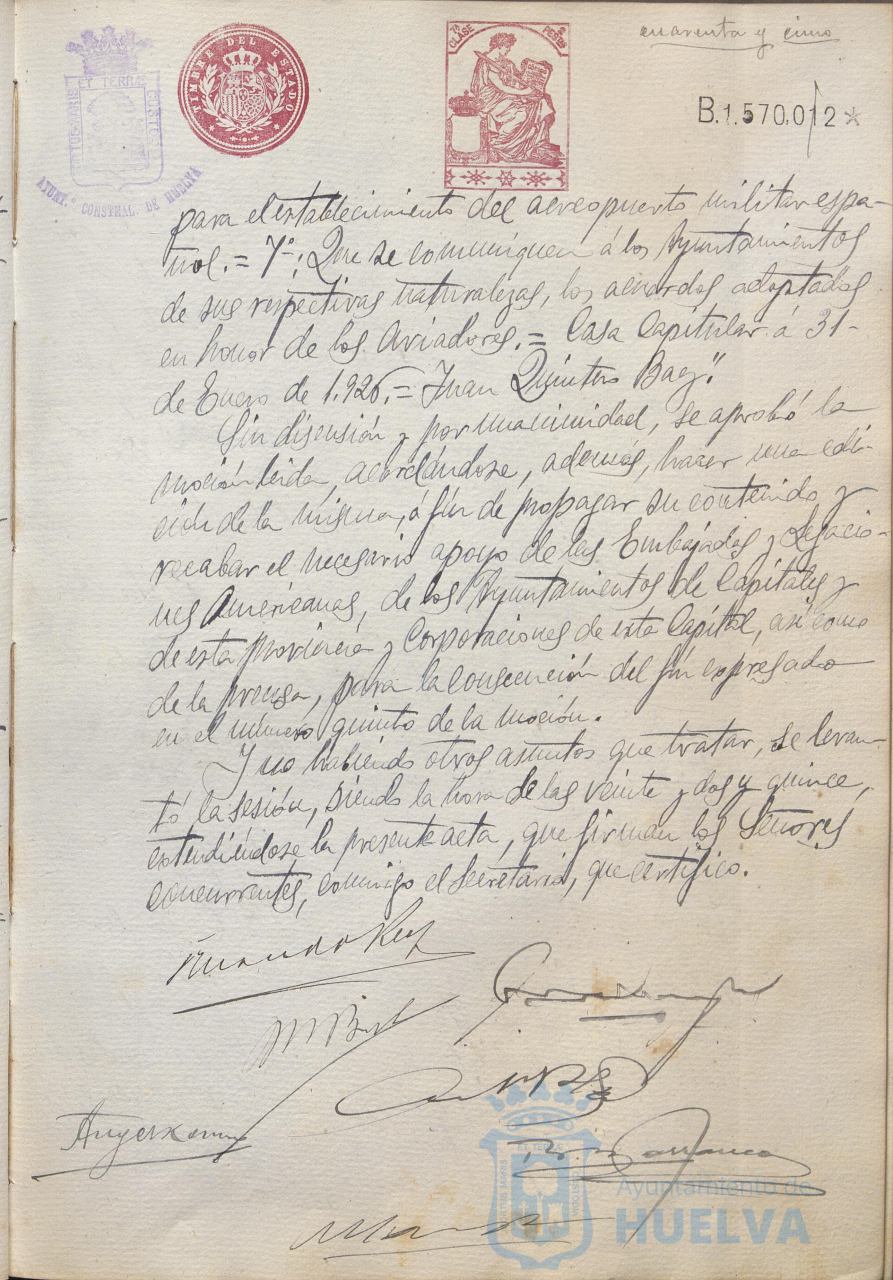 cuarenta y cinco
TIMBRE DEL ESTADO
7ª CLASE
PESETAS
B.1.570.012 *
AYUNT.º CONSTNAL. DE HUELVA
para el establecimiento del aereopuerto militar espa-
ñol.= 7º: Que se comuniquen á los Ayuntamientos
de sus respectivas naturalezas, los acuerdos adoptados
en honor de los Aviadores.= Casa Capitular á 31-
de Enero de 1.926.= Juan Quintero Baez".
Sin discusión y por unanimidad, se aprobó la
moción leida, acordándose, además, hacer una edi-
ción de la misma, á fin de propagar su contenido y
recabar el necesario apoyo de las Embajadas y Legacio-
nes Americanas, de los Ayuntamientos de Capitales y
de esta provincia y Corporaciones de esta Capital, así como
de la prensa, para la consecución del fin expresado
en el número quinto de la moción.
Y no habiendo otros asuntos que tratar, se levan-
tó la sesión, siendo la hora de las veinte y dos y quince,
extendiéndose la presente acta, que firman los Señores
concurrentes, conmigo el Secretario, que certifico.
Ayuntamiento de
HUELVA